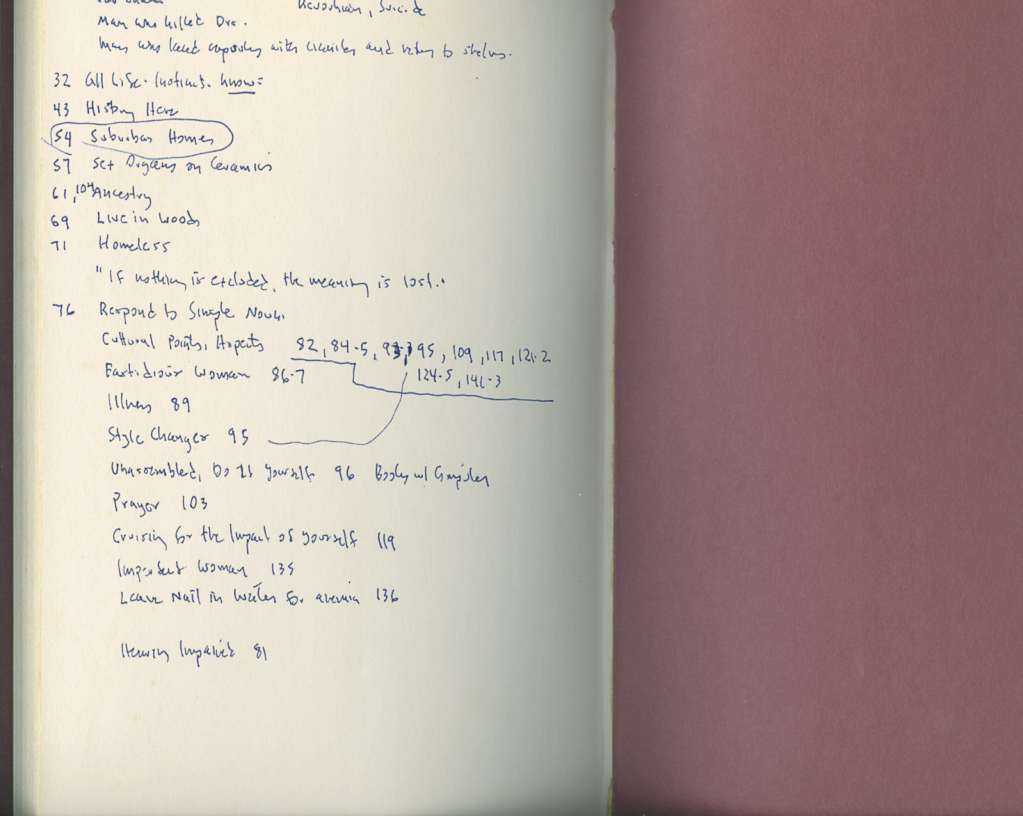 Kevorkian, Suicide
Man was killed Dec.
Man was and return to shelves.
32 All Life. Instincts. know =
43 History Here
54 Suburban Homes
57 Set Organs on Ceramics
61, 104 Ancestry
69 Live in Woods
71 Homeless
"If nothing is excluded, the meaning is lost."
76 Respond to Single Noun.
Cultural Points, 82, 84-5, 93, 95, 109, 117, 121-2
Fastidious Woman 86-7 124-5, 141-3
Illness 89
Style Changer 95
Unassembled, Do It Yourself 96 Books w/
Prayer 103
Cruising for the Impact of yourself 119
Impudent Woman 135
Leave Nail in Water for anemia 136
Hearing Impaired 81